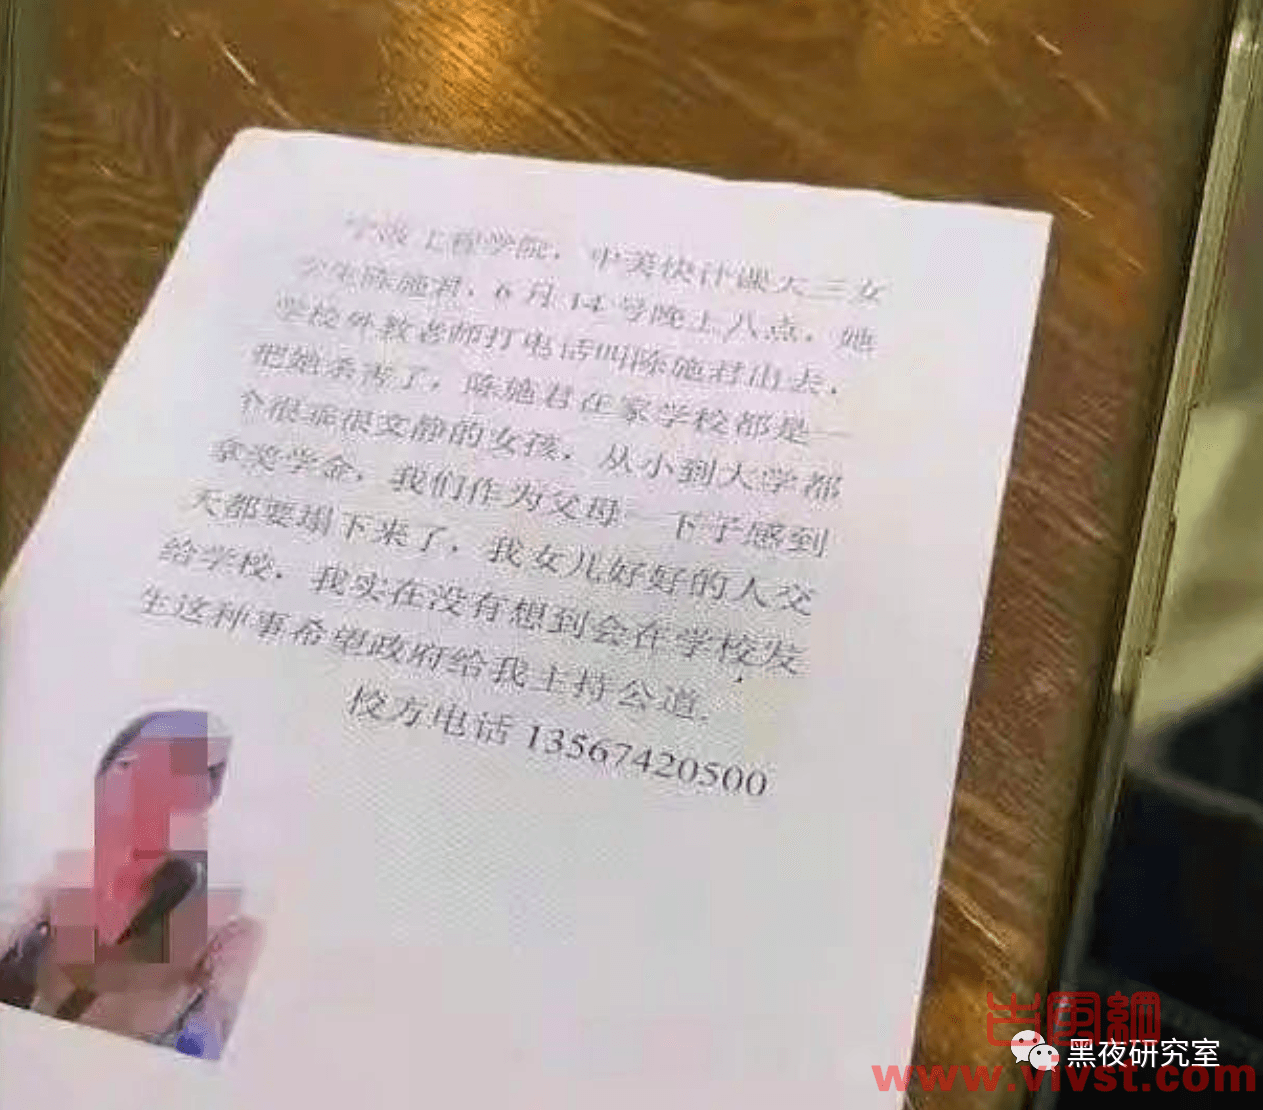 宁波工程学院，中美快计课大三女
学生陈施君，6月14号晚上八点，她
学校外教老师打电话叫陈施君出去，
把她杀害了，陈施君在家学校都是一
个很乖很文静的女孩，从小到大学都
拿奖学金，我们作为父母一下子感到
天都要塌下来了，我女儿好好的人交
给学校，我实在没有想到会在学校发
生这种事希望政府给我主持公道.
校方电话 13567420500
出国網
黑夜研究室
www.vivst.com